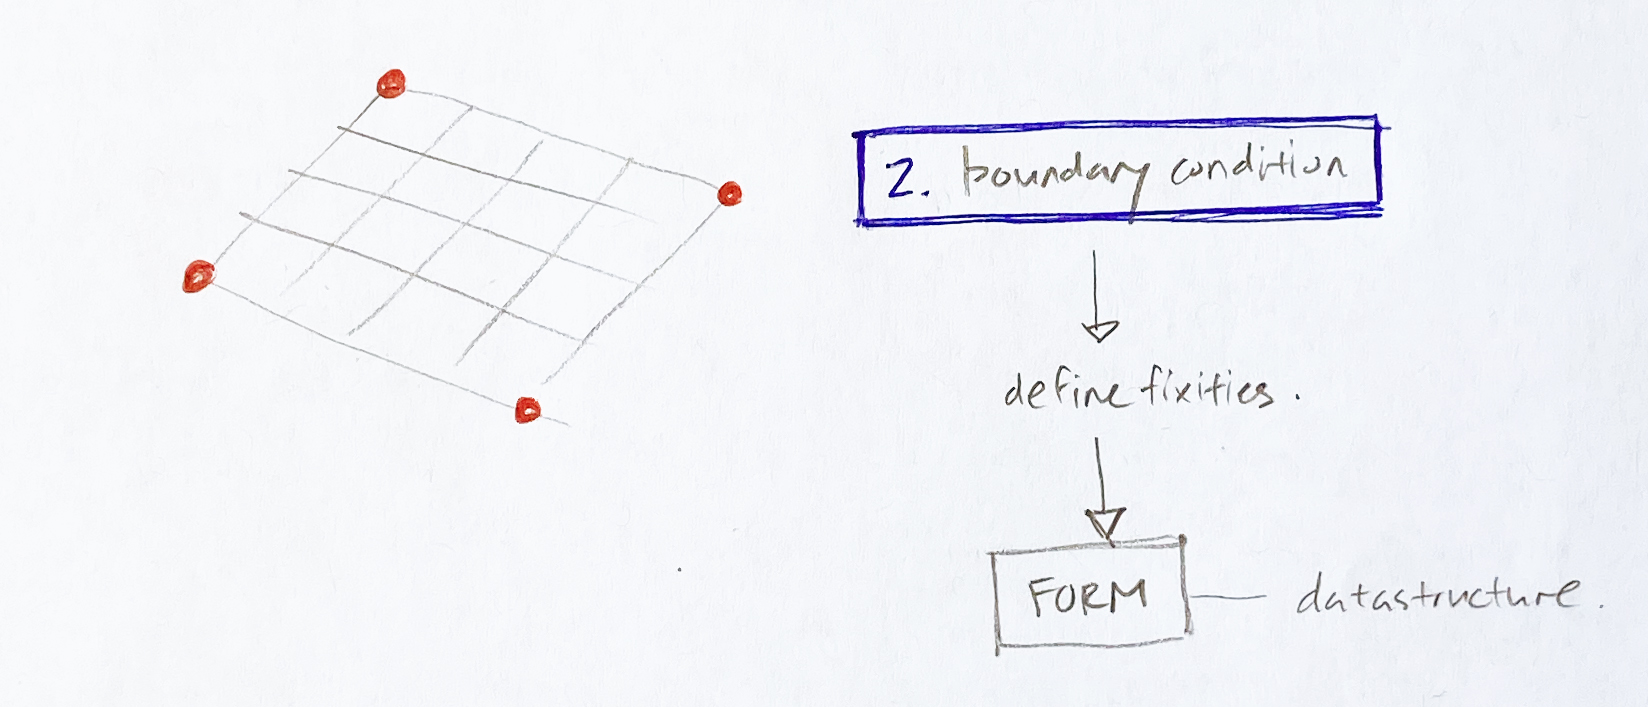 2. boundary condition
define fixities.
FORM
datastructure.